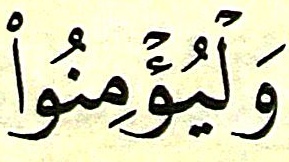 وَلۡيُؤۡمِنُواْ